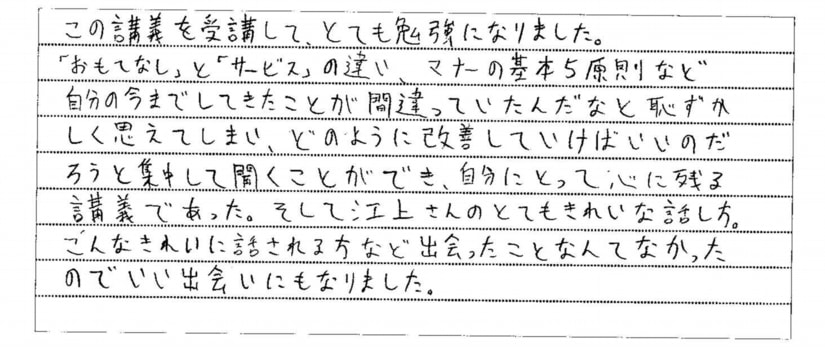 この講義を受講して、とても勉強になりました。
「おもてなし」と「サービス」の違い、マナーの基本5原則など
自分の今までしてきたことが間違っていたんだなと恥ずか
しく思えてしまい、どのように改善していけばいいのだ
ろうと集中して聞くことができ、自分にとって心に残る
講義であった。そして江上さんのとてもきれいな話し方。
こんなきれいに話される方など出会ったことなんてなかった
のでいい出会いにもなりました。